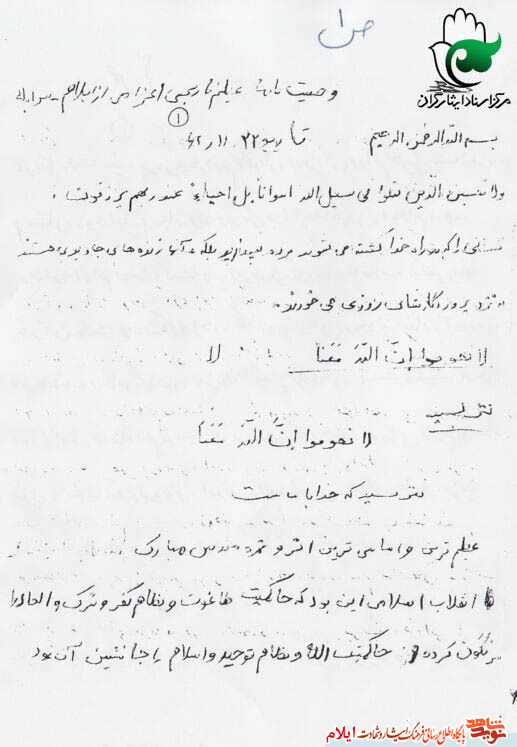 ص ۱
مرکز اسناد ایثارگران
وصیت نامه اعزامی از ایلام
۱
بسم الله الرحمن الرحیم
ولا تحسبن الذین قتلوا فی سبیل الله امواتا بل احیاء عند ربهم یرزقون
کسانی را که در راه خدا کشته می شوند مرده مپندارید بلکه آنها زنده های جاویدی هستند
نزد پروردگارشان روزی می خورند
ان الله معنا لا
نترسید
ان الله معنا
نترسید که خدا با ماست
عظیم ترین و اساسی ترین اثر و ثمره مبارک
انقلاب اسلامی این بود که حاکمیت طاغوت و نظام کفر و شرک و الحاد را
سرنگون کرده و حاکمیت الله و نظام توحید و اسلام را جانشین آن نمود
نوید شاهد پایگاه اطلاع رسانی فرهنگ ایثار و شهادت ایلام